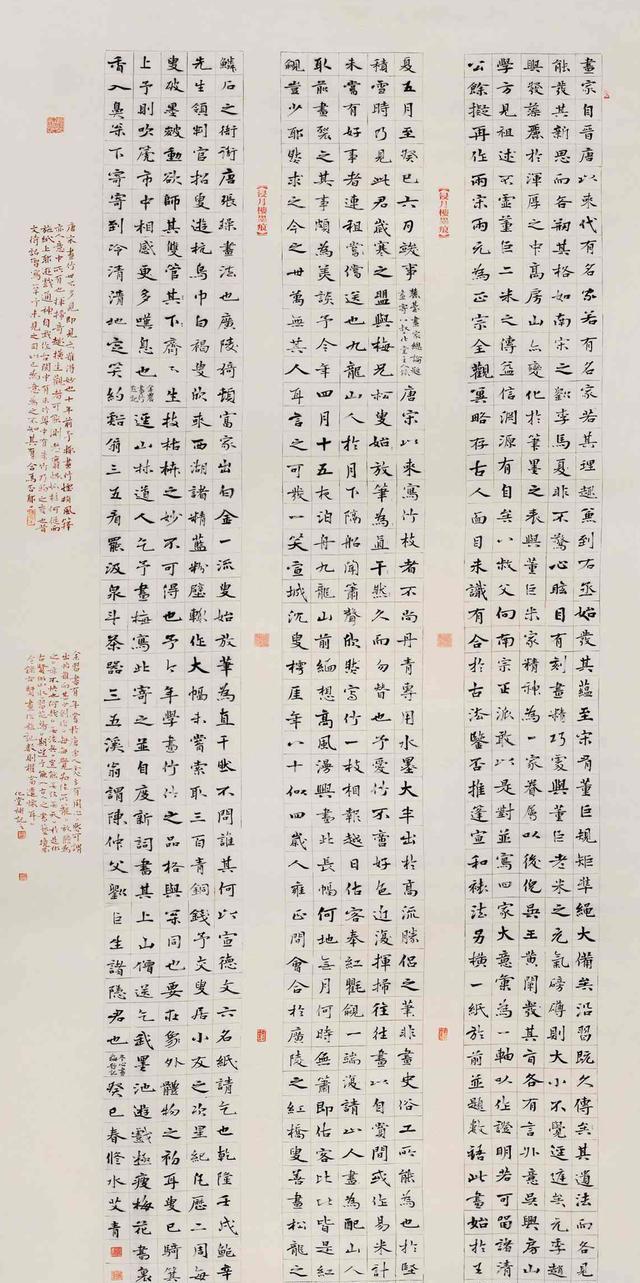 畫宗自晉唐以來代有名家若有名家若其理趣兼到右丞始發其蘊至宋有董巨規矩準繩大備矣沿習既久傳矣其遺法而各見
能發其新思而各翱其格如南宋之劉李馬夏非不驚心眩目有刻畫精巧處與董巨老米之元氣磅礴則大小不覺逕庭矣元季趙
興發藻麗於渾厚之中高房山示變化於筆墨之表與董巨米家精神為一家眷屬以後倪吳王黃闡發其旨各有言外意吳興房山
學方見祖述不虛董巨二米之傳益信淵源有自矣以救父向南宗正派敢以是對並寫四家大意彙為一軸以作證明若可留諸清
公餘擬再作兩宋兩元為正宗全觀冀略存古人面目未識有合於古法鑒否推蓬宣和裱法另橫一紙於前並題數語此畫始於壬
【浸月樓墨痕】
夏五月至癸巳六月竣事麓臺畫家總論題畫寄八叔唐宋以來寫竹枝者不尚丹青專用水墨大半出於高流勝侶之筆非畫史俗工所能為也於堅
積雪時乃見此君歲寒之盟與梅兄松叟始放筆為直干然久而勿替也予愛竹不啻好色近復揮掃往往畫以自賞間或作易米計
未嘗有好事者連租嘗償送也九龍山人於月下隔船聞簫聲欣然寫竹一枝相報越日估客奉紅氍毹一端復請山人畫為配山人
取前畫裂之其事頗為美談予今年四月十五夜泊舟九龍山前緬想高風漫興畫此長幅何地無月何時無簫即估客比比皆是紅
豈少耶然求之今之世萬無其人耳言之可發一笑宣城沈叟樗厓年八十似四歲人雍正間會合於廣陵之紅橋叟善畫松龍之
【浸月樓墨痕】
鱗石之衝衝唐張璪畫法也廣陵猗頓富家出白金一流叟始放筆為直干然不問誰其何以宣德文六名紙請乞也乾隆壬戌鮑辛
先生領判官招叟遊杭烏巾白褐叟欣來西湖諸精藍粉壁輒作大幅未嘗索取三百青銅錢予交叟居小友之次星紀凡歷二周每
叟破墨皴動欲師其雙管其下齊下生枝枯榦之妙不可得也予今年學畫竹竹之品格與案同也要在象外體物之初耳叟已騎箕
上予則吹篪市中相感更多嘆息也冬心畫竹題記逕山林道人乞予畫梅寫此寄之並自度新詞書其上山僧送乞貳墨池遊戲極瘦梅花畫裏
香入鼻案下寄寄到冷清清地定笑約谿翁三五看罷汲泉斗茶器三五溪翁謂陳仲父劉巨生諸隱君也冬心畫梅題記癸巳春修水艾青